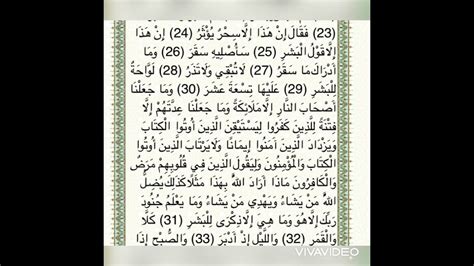 (23) فَقَالَ إِنْ هَذَا إِلَّا سِحْرٌ يُؤْثَرُ (24) إِنْ هَذَا
إِلَّا قَوْلُ الْبَشَرِ (25) سَأُصْلِيهِ سَقَرَ (26) وَمَا
أَدْرَاكَ مَا سَقَرُ (27) لَا تُبْقِي وَلَا تَذَرُ (28) لَوَّاحَةٌ
لِلْبَشَرِ (29) عَلَيْهَا تِسْعَةَ عَشَرَ (30) وَمَا جَعَلْنَا
أَصْحَابَ النَّارِ إِلَّا مَلَائِكَةً وَمَا جَعَلْنَا عِدَّتَهُمْ إِلَّا
فِتْنَةً لِلَّذِينَ كَفَرُوا لِيَسْتَيْقِنَ الَّذِينَ أُوتُوا الْكِتَابَ
وَيَزْدَادَ الَّذِينَ آمَنُوا إِيمَانًا وَلَا يَرْتَابَ الَّذِينَ أُوتُوا
الْكِتَابَ وَالْمُؤْمِنُونَ وَلِيَقُولَ الَّذِينَ فِي قُلُوبِهِمْ مَرَضٌ
وَالْكَافِرُونَ مَاذَا أَرَادَ اللَّهُ بِهَذَا مَثَلًا كَذَلِكَ يُضِلُّ
اللَّهُ مَنْ يَشَاءُ وَيَهْدِي مَنْ يَشَاءُ وَمَا يَعْلَمُ جُنُودَ
رَبِّكَ إِلَّا هُوَ وَمَا هِيَ إِلَّا ذِكْرَى لِلْبَشَرِ (31) كَلَّا
وَالْقَمَرِ (32) وَاللَّيْلِ إِذْ أَدْبَرَ (33) وَالصُّبْحِ إِذَا
VIVAVIDEO